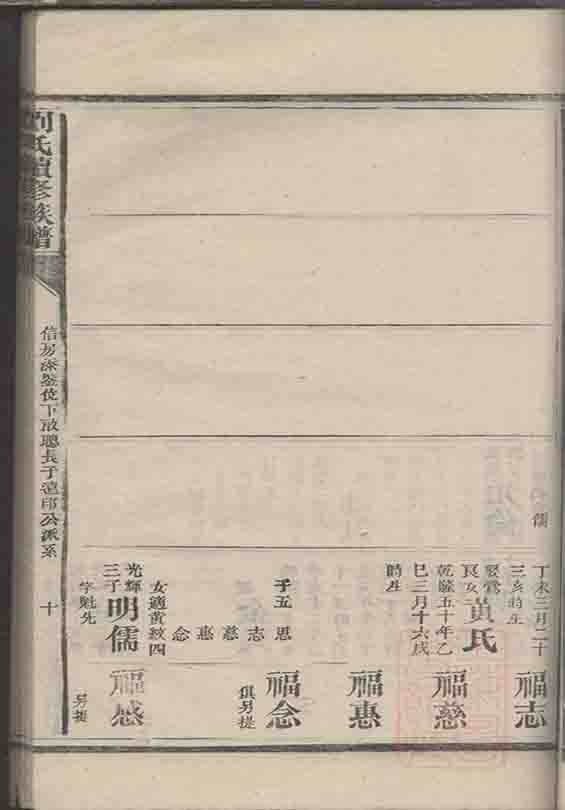 儒
丁未三月二十
三亥時生
娶
黃氏
乾隆五十年乙
巳三月十六戌
時生
子五
思
志
慈
惠
念
女適黃紋四
光輝
三子
明儒
字魁先
福志
福慈
福惠
福念
俱另提
福感
另提
劉氏續修族譜
信房添鑒位下啟聰長子遠邱公派系
十